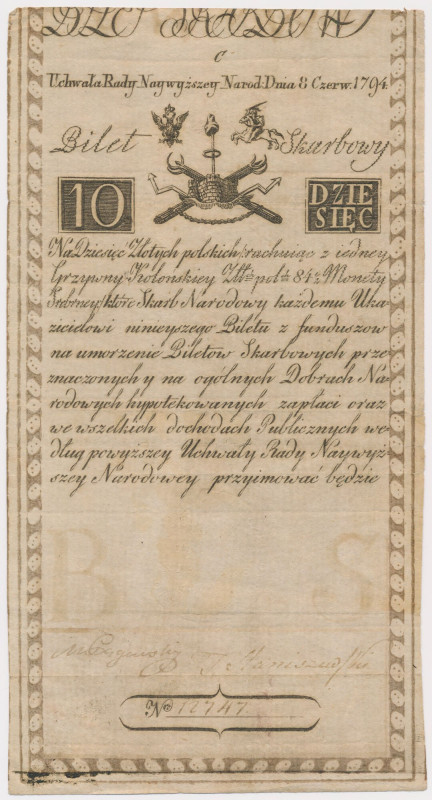 BILET SKARBOWY
c
Uchwała Rady Naywyższey Narod: Dnia 8 Czerw. 1794.
Bilet Skarbowy
10 DZIE
SIĘC
Na Dziesięc Złotych polskich rachuiąc z iedney
Grzywny Kolonskiey Złt: pol: 84 c. Monety
Srebrney, które Skarb Narodowy każdemu Uka-
zicielowi ninieyszego Biletu z funduszow
na umorzenie Biletow Skarbowych prze-
znaczonych y na ogólnych Dobrach Na-
rodowych hypotekowanych zapłaci oraz
we wszelkich dochodach Publicznych we-
dług powyższey Uchwały Rady Naywyż-
szey Narodowey przyimować będzie
B S
No 12747.